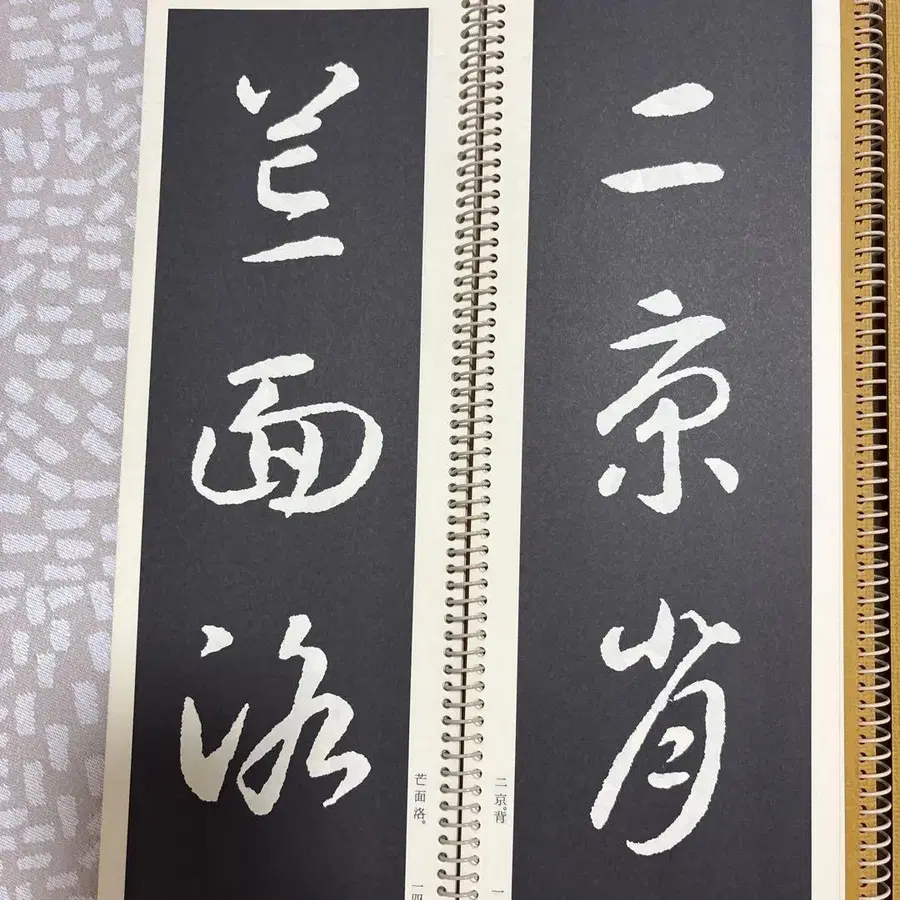 二京背
二京。背
芒面洛。
芒面洛